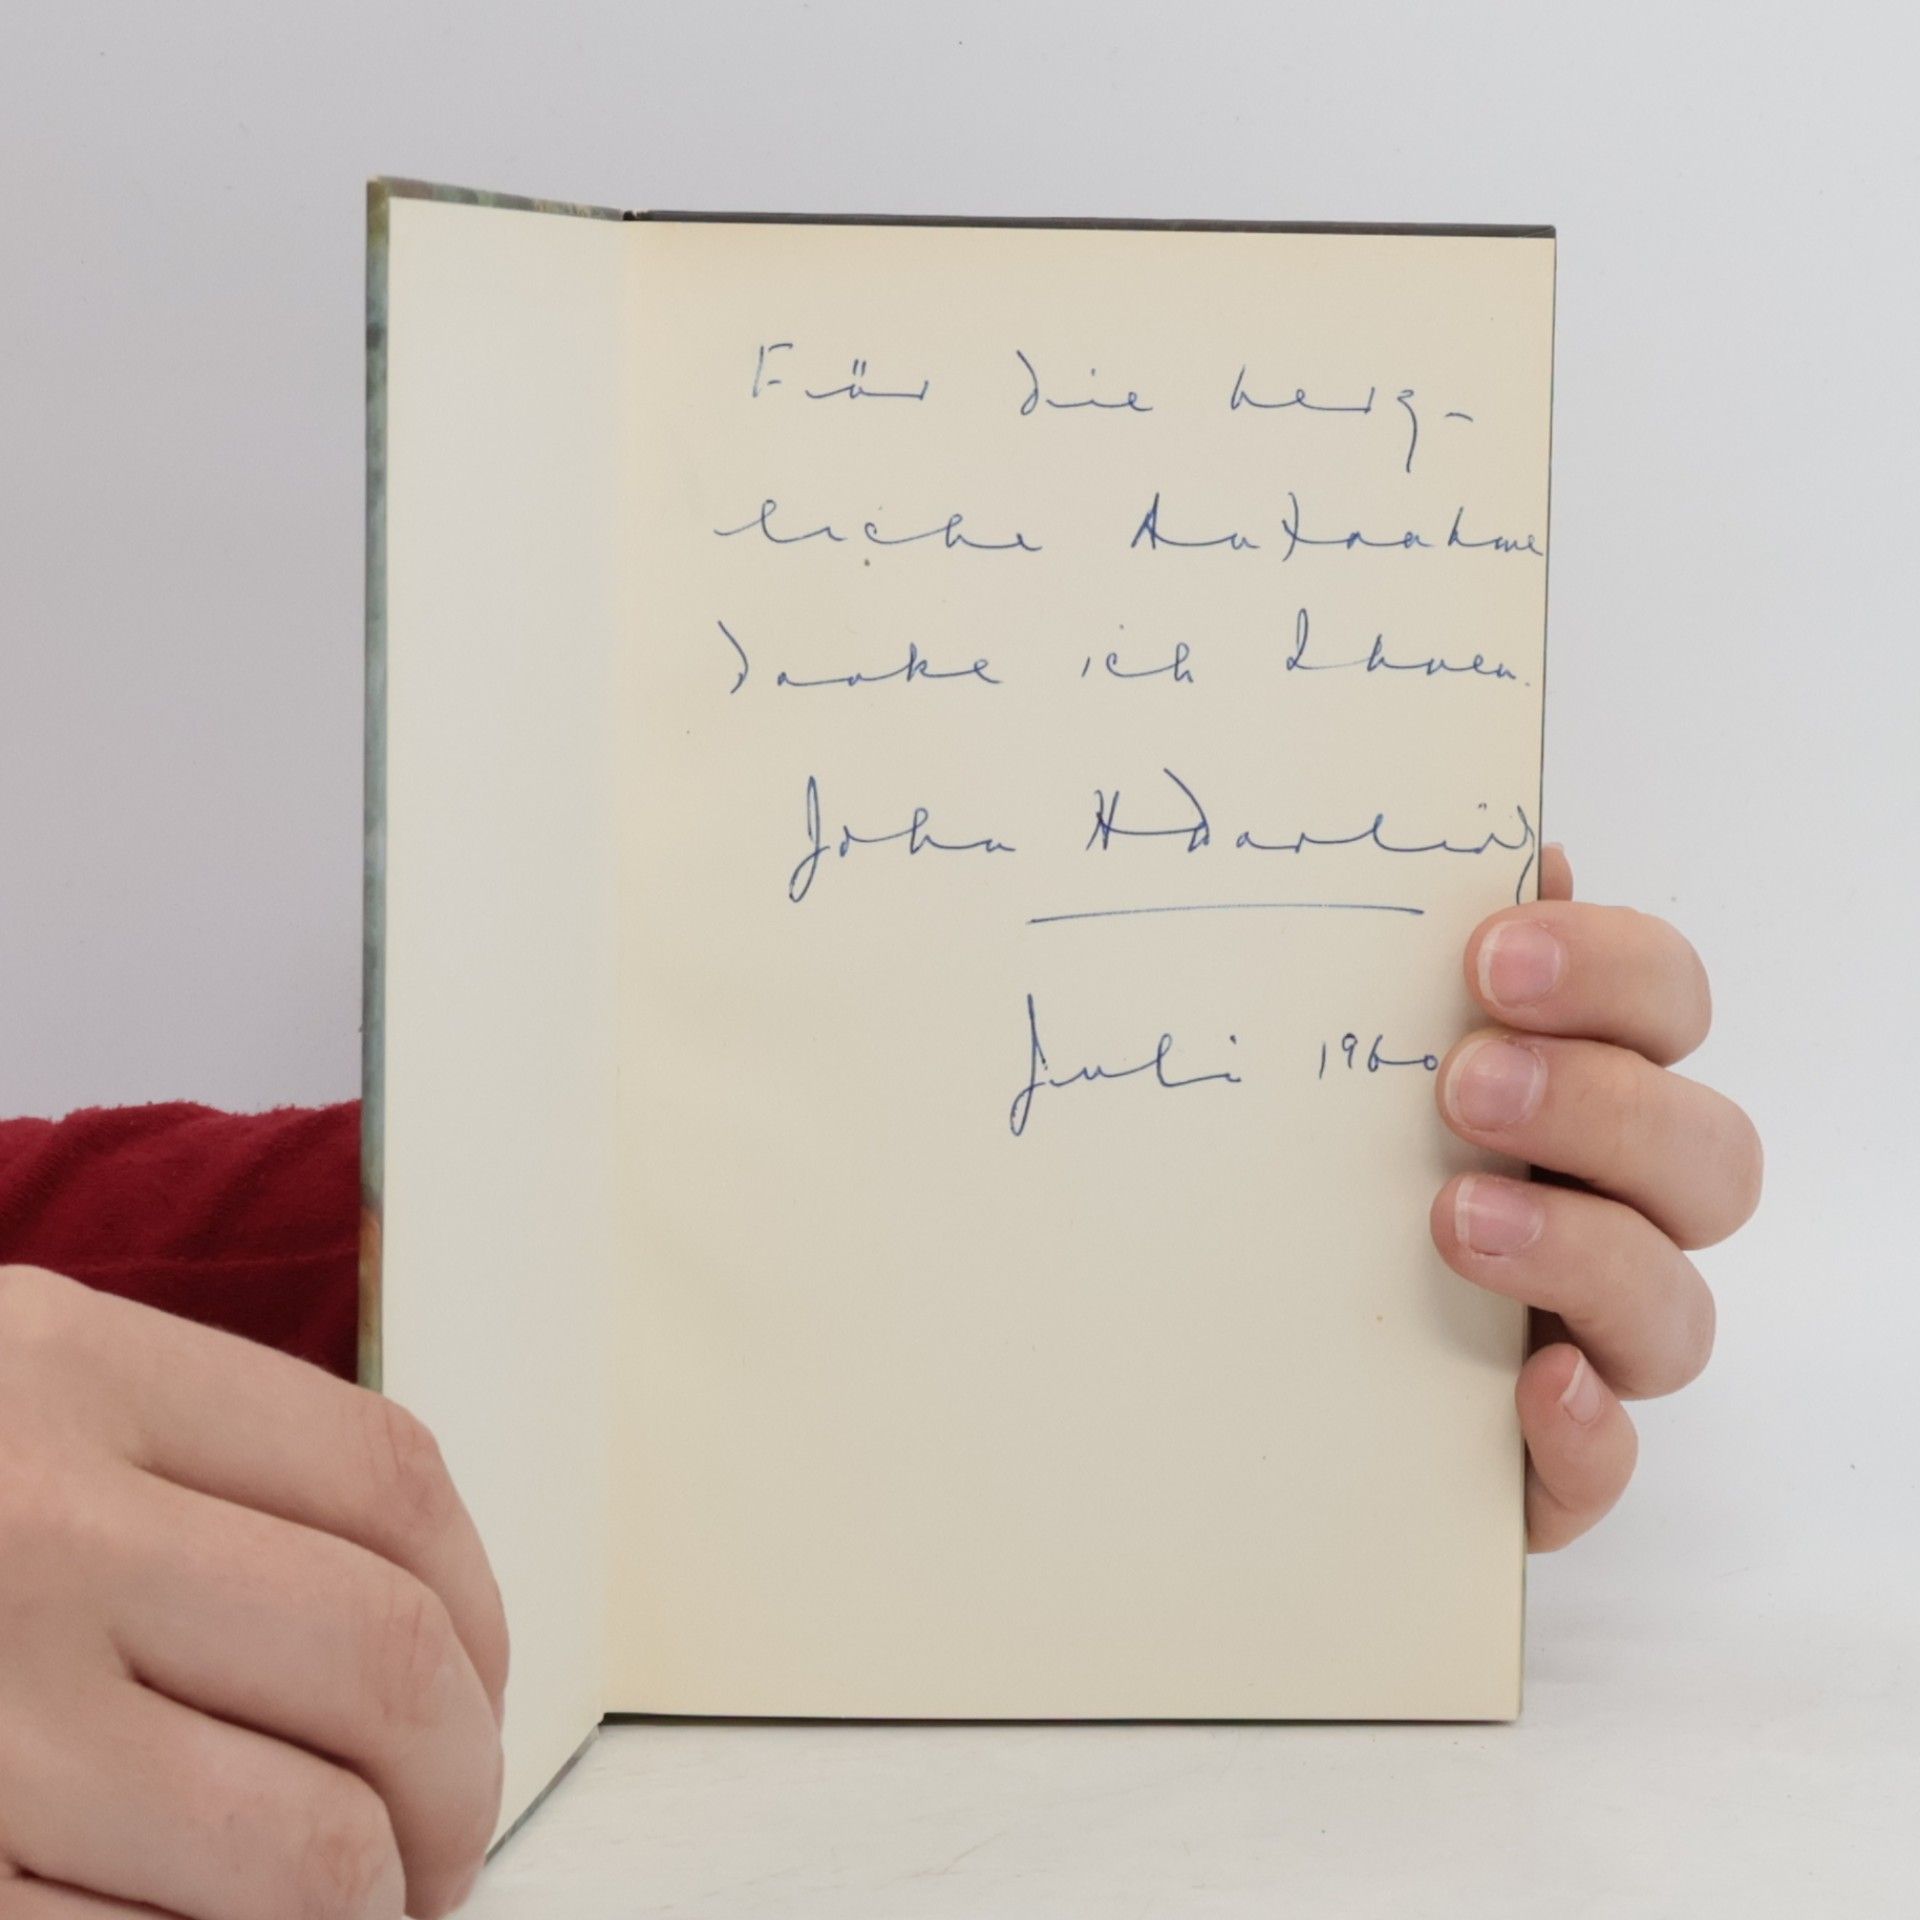 Für die herz-
liche Aufnahme
danke ich Ihnen.
John H Darling
Juli 1960